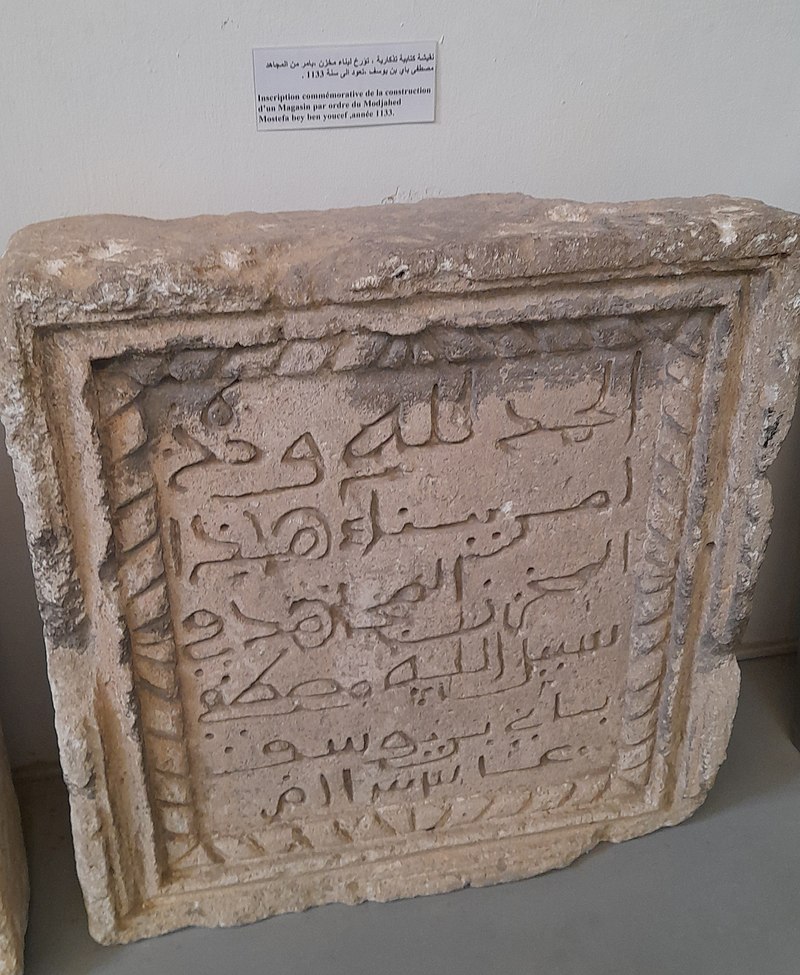 نقيشة كتابية تذكارية ، تؤرخ لبناء مخزن ،بامر من المجاهد
مصطفى باي بن يوسف ،تعود الى سنة 1133 .
Inscription commémorative de la construction
d'un Magasin par ordre du Modjahed
Mostefa bey ben youcef ,année 1133.
الحمد لله و
امر ببناء هذا
المخزن المجاهد في
سبيل الله مصطفى
باي بن يوسف
عام